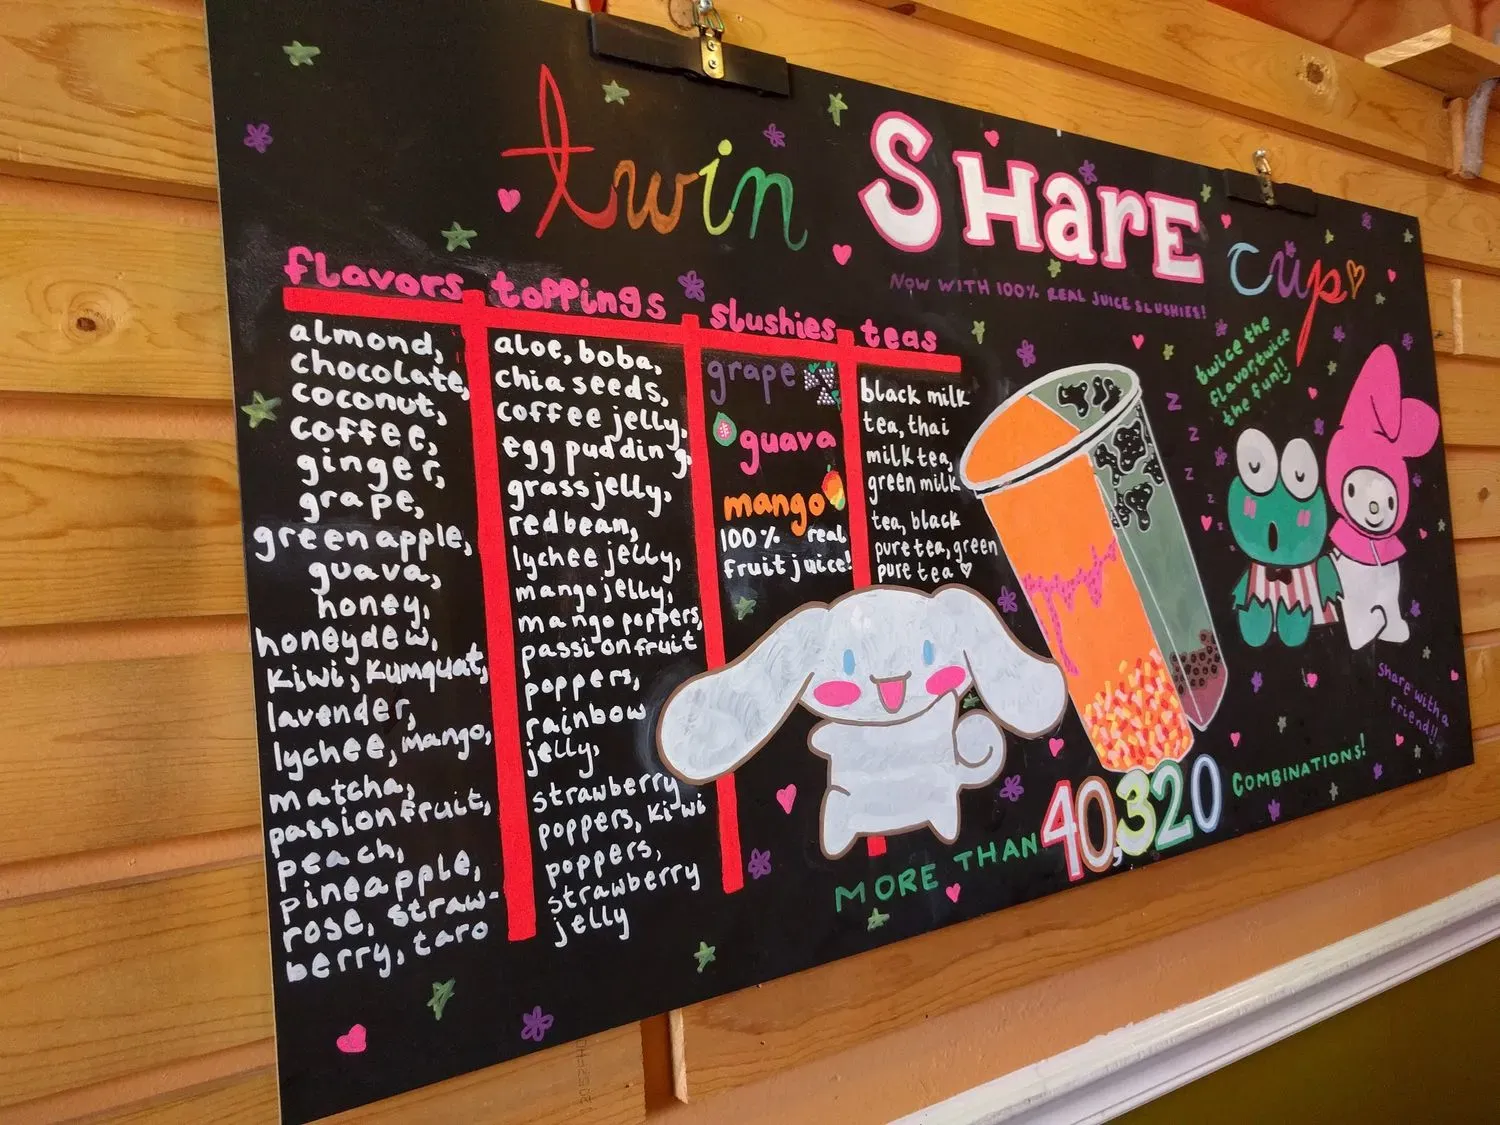 twin SHarE cup
NOW WITH 100% REAL JUICE SLUSHIES!
flavors
almond,
chocolate,
coconut,
coffee,
ginger,
grape,
green apple,
guava,
honey,
honeydew,
kiwi, kumquat,
lavender,
lychee, mango,
matcha,
passionfruit,
peach,
pineapple,
rose, straw-
berry, taro
toppings
aloe, boba,
chia seeds,
coffee jelly,
egg pudding,
grass jelly,
red bean,
lychee jelly,
mango jelly,
mango poppers,
passionfruit
poppers,
rainbow
jelly,
strawberry
poppers, kiwi
poppers,
strawberry
jelly
slushies
grape
guava
mango
100% real
fruit juice!
teas
black milk
tea, thai
milk tea,
green milk
tea, black
pure tea, green
pure tea
twice the
flavor, twice
the fun!!
z
z
z
z
z
share with a
friend!!
MORE THAN 40,320 COMBINATIONS!